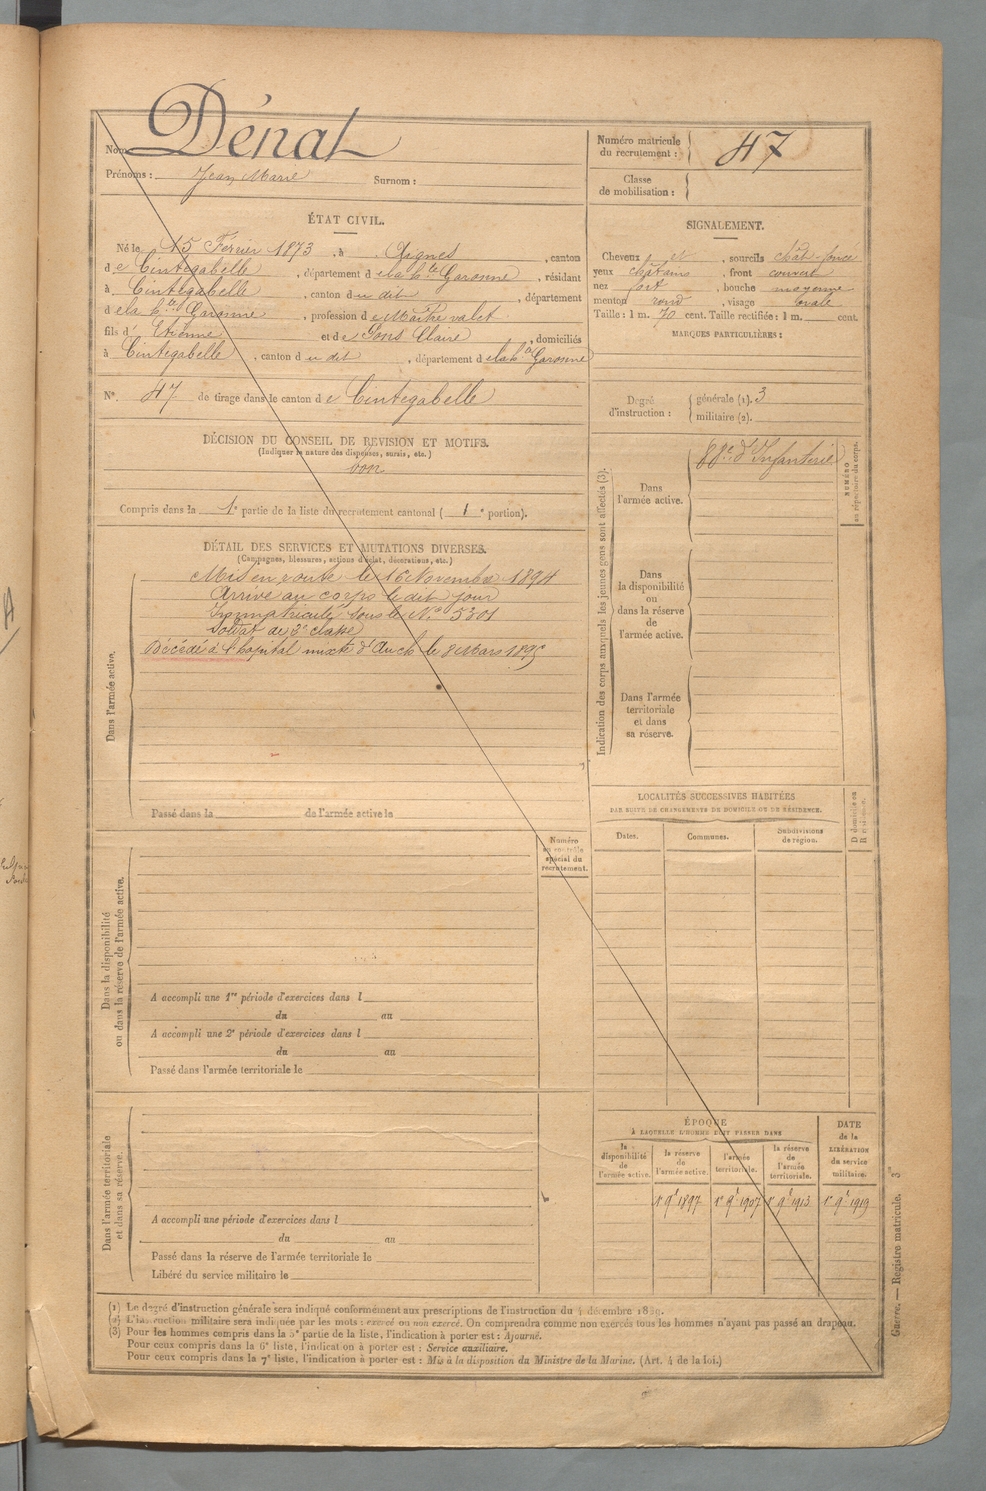 Nom Dénat
Prénoms : Jean Marie Surnom :
Numéro matricule du recrutement : 47
Classe de mobilisation :
ÉTAT CIVIL.
Né le 15 Février 1873, à Aignes, canton
de Cintegabelle, département de la hte Garonne, résidant
à Cintegabelle, canton du dit, département
de la hte Garonne, profession de Maître valet
fils d'Etienne et de Pons Claire, domiciliés
à Cintegabelle, canton du dit, département de la hte Garonne
No. 47 de tirage dans le canton de Cintegabelle
DÉCISION DU CONSEIL DE REVISION ET MOTIFS.
(Indiquer la nature des dispenses, sursis, etc.)
bon
Compris dans la 1e partie de la liste du recrutement cantonal ( 1e portion).
DÉTAIL DES SERVICES ET MUTATIONS DIVERSES.
(Campagnes, blessures, actions d'éclat, décorations, etc.)
Mis en route le 16 Novembre 1894
Arrivé au corps le dit jour
Immatriculé sous le No 5301
Soldat de 2e classe
Décédé à l'hopital mixte d'Auch le 8 Mars 1895
Dans l'armée active.
Passé dans la de l'armée active le
Numéro au contrôle spécial du recrutement.
Dans la disponibilité
ou dans la réserve de l'armée active.
A accompli une 1re période d'exercices dans l
du au
A accompli une 2e période d'exercices dans l
du au
Passé dans l'armée territoriale le
Dans l'armée territoriale
et dans sa réserve.
A accompli une période d'exercices dans l
du au
Passé dans la réserve de l'armée territoriale le
Libéré du service militaire le
SIGNALEMENT.
Cheveux et, sourcils chât. foncé
yeux châtains, front couvert
nez fort, bouche moyenne
menton rond, visage ovale
Taille : 1 m. 70 cent. Taille rectifiée : 1 m. cent.
MARQUES PARTICULIÈRES :
Degré d'instruction :
générale (1). 3
militaire (2).
Indication des corps auxquels les jeunes gens sont affectés (3).
88e d'Infanterie
NUMÉRO
au répertoire du corps.
Dans
l'armée active.
Dans
la disponibilité
ou
dans la réserve
de
l'armée active.
Dans l'armée
territoriale
et dans
sa réserve.
LOCALITÉS SUCCESSIVES HABITÉES
PAR SUITE DE CHANGEMENTS DE DOMICILE OU DE RÉSIDENCE.
Dates. Communes. Subdivisions de région. D domicile ou R résidence.
ÉPOQUE
À LAQUELLE L'HOMME DOIT PASSER DANS
la disponibilité de l'armée active.
la réserve de l'armée active.
l'armée territoriale.
la réserve de l'armée territoriale.
DATE de la LIBÉRATION du service militaire.
1er 9e 1897 1er 9e 1907 1er 9e 1913 1er 9e 1919
(1) Le degré d'instruction générale sera indiqué conformément aux prescriptions de l'instruction du 4 décembre 1889.
(2) L'instruction militaire sera indiquée par les mots : exercé ou non exercé. On comprendra comme non exercés tous les hommes n'ayant pas passé au drapeau.
(3) Pour les hommes compris dans la 5e partie de la liste, l'indication à porter est : Ajourné.
Pour ceux compris dans la 6e liste, l'indication à porter est : Service auxiliaire.
Pour ceux compris dans la 7e liste, l'indication à porter est : Mis à la disposition du Ministre de la Marine. (Art. 4 de la loi.)
Guerre. — Registre matricule. 3